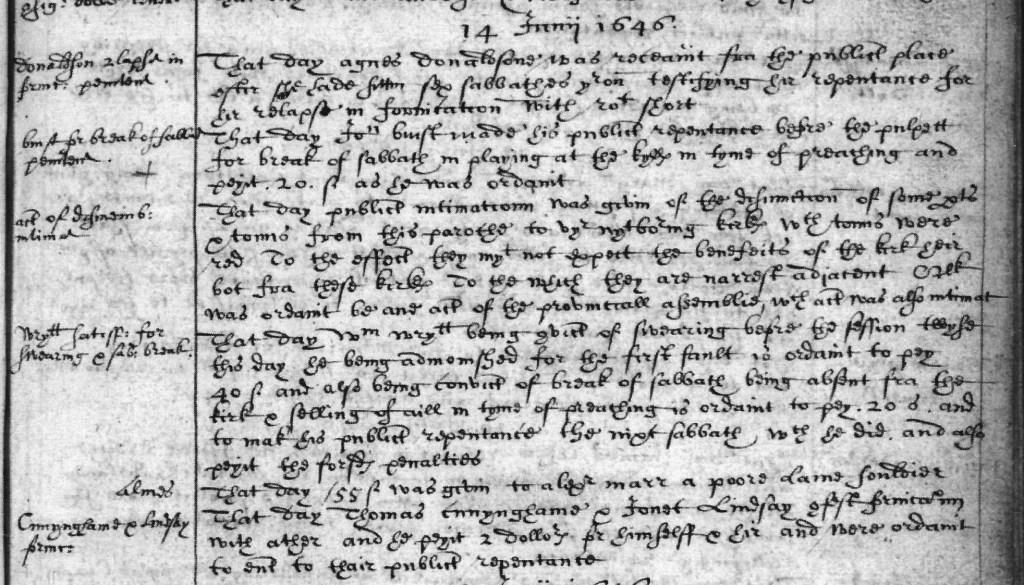 14 Junij 1646.
donaldson relapse in
fornic: penitent.
That day agnes donaldsone was receavit fra the publict place
efter she hade sittin sex sabbathes yron testifying hir repentance for
hir relapse in fornicatioun with rot short
buist for break of sabbath
penitent.
That day Jon buist made his publict repentance befre the pulpett
for break of sabbath in playing at the kylls in tyme of preaching and
peyit . 20 . s as he was ordanit
act of dismemb:
intimat
That day publict intimatioun was givin of the disjunctioun of some
& tounis from this paroche to uyr nytboring kirks wch tounis were
red To the effect they myt not expect the benefeits of the kirk heir
bot fra these kirks To the which they are narrest adjacent Qlk
was ordanit be ane act of the provinciall assemblie wch act was also intimat
Wrytt satisf: for
swearing & sab: break.
That day Wm wrytt being convict of swearing befre the session twyse
this day he being admonished for the first fault is ordanit to pey
40 s and also being convict of break of sabbath being absent fra the
kirk & selling of aill in tyme of preaching is ordanit to pey . 20 s . and
to mak his publict repentance the nixt sabbath wch he did . and also
peyit the forsds penalties
Almes
That day 55 s was givin to alexr marr a poore lame souldier
Cunynghame & Lindsay
fornic:
That day Thomas cunynghame & Jonet Lindsay fornicatioun
with ather and he peyit 2 dollors for himselff & hir and were ordanit
to ent to thair publict repentance